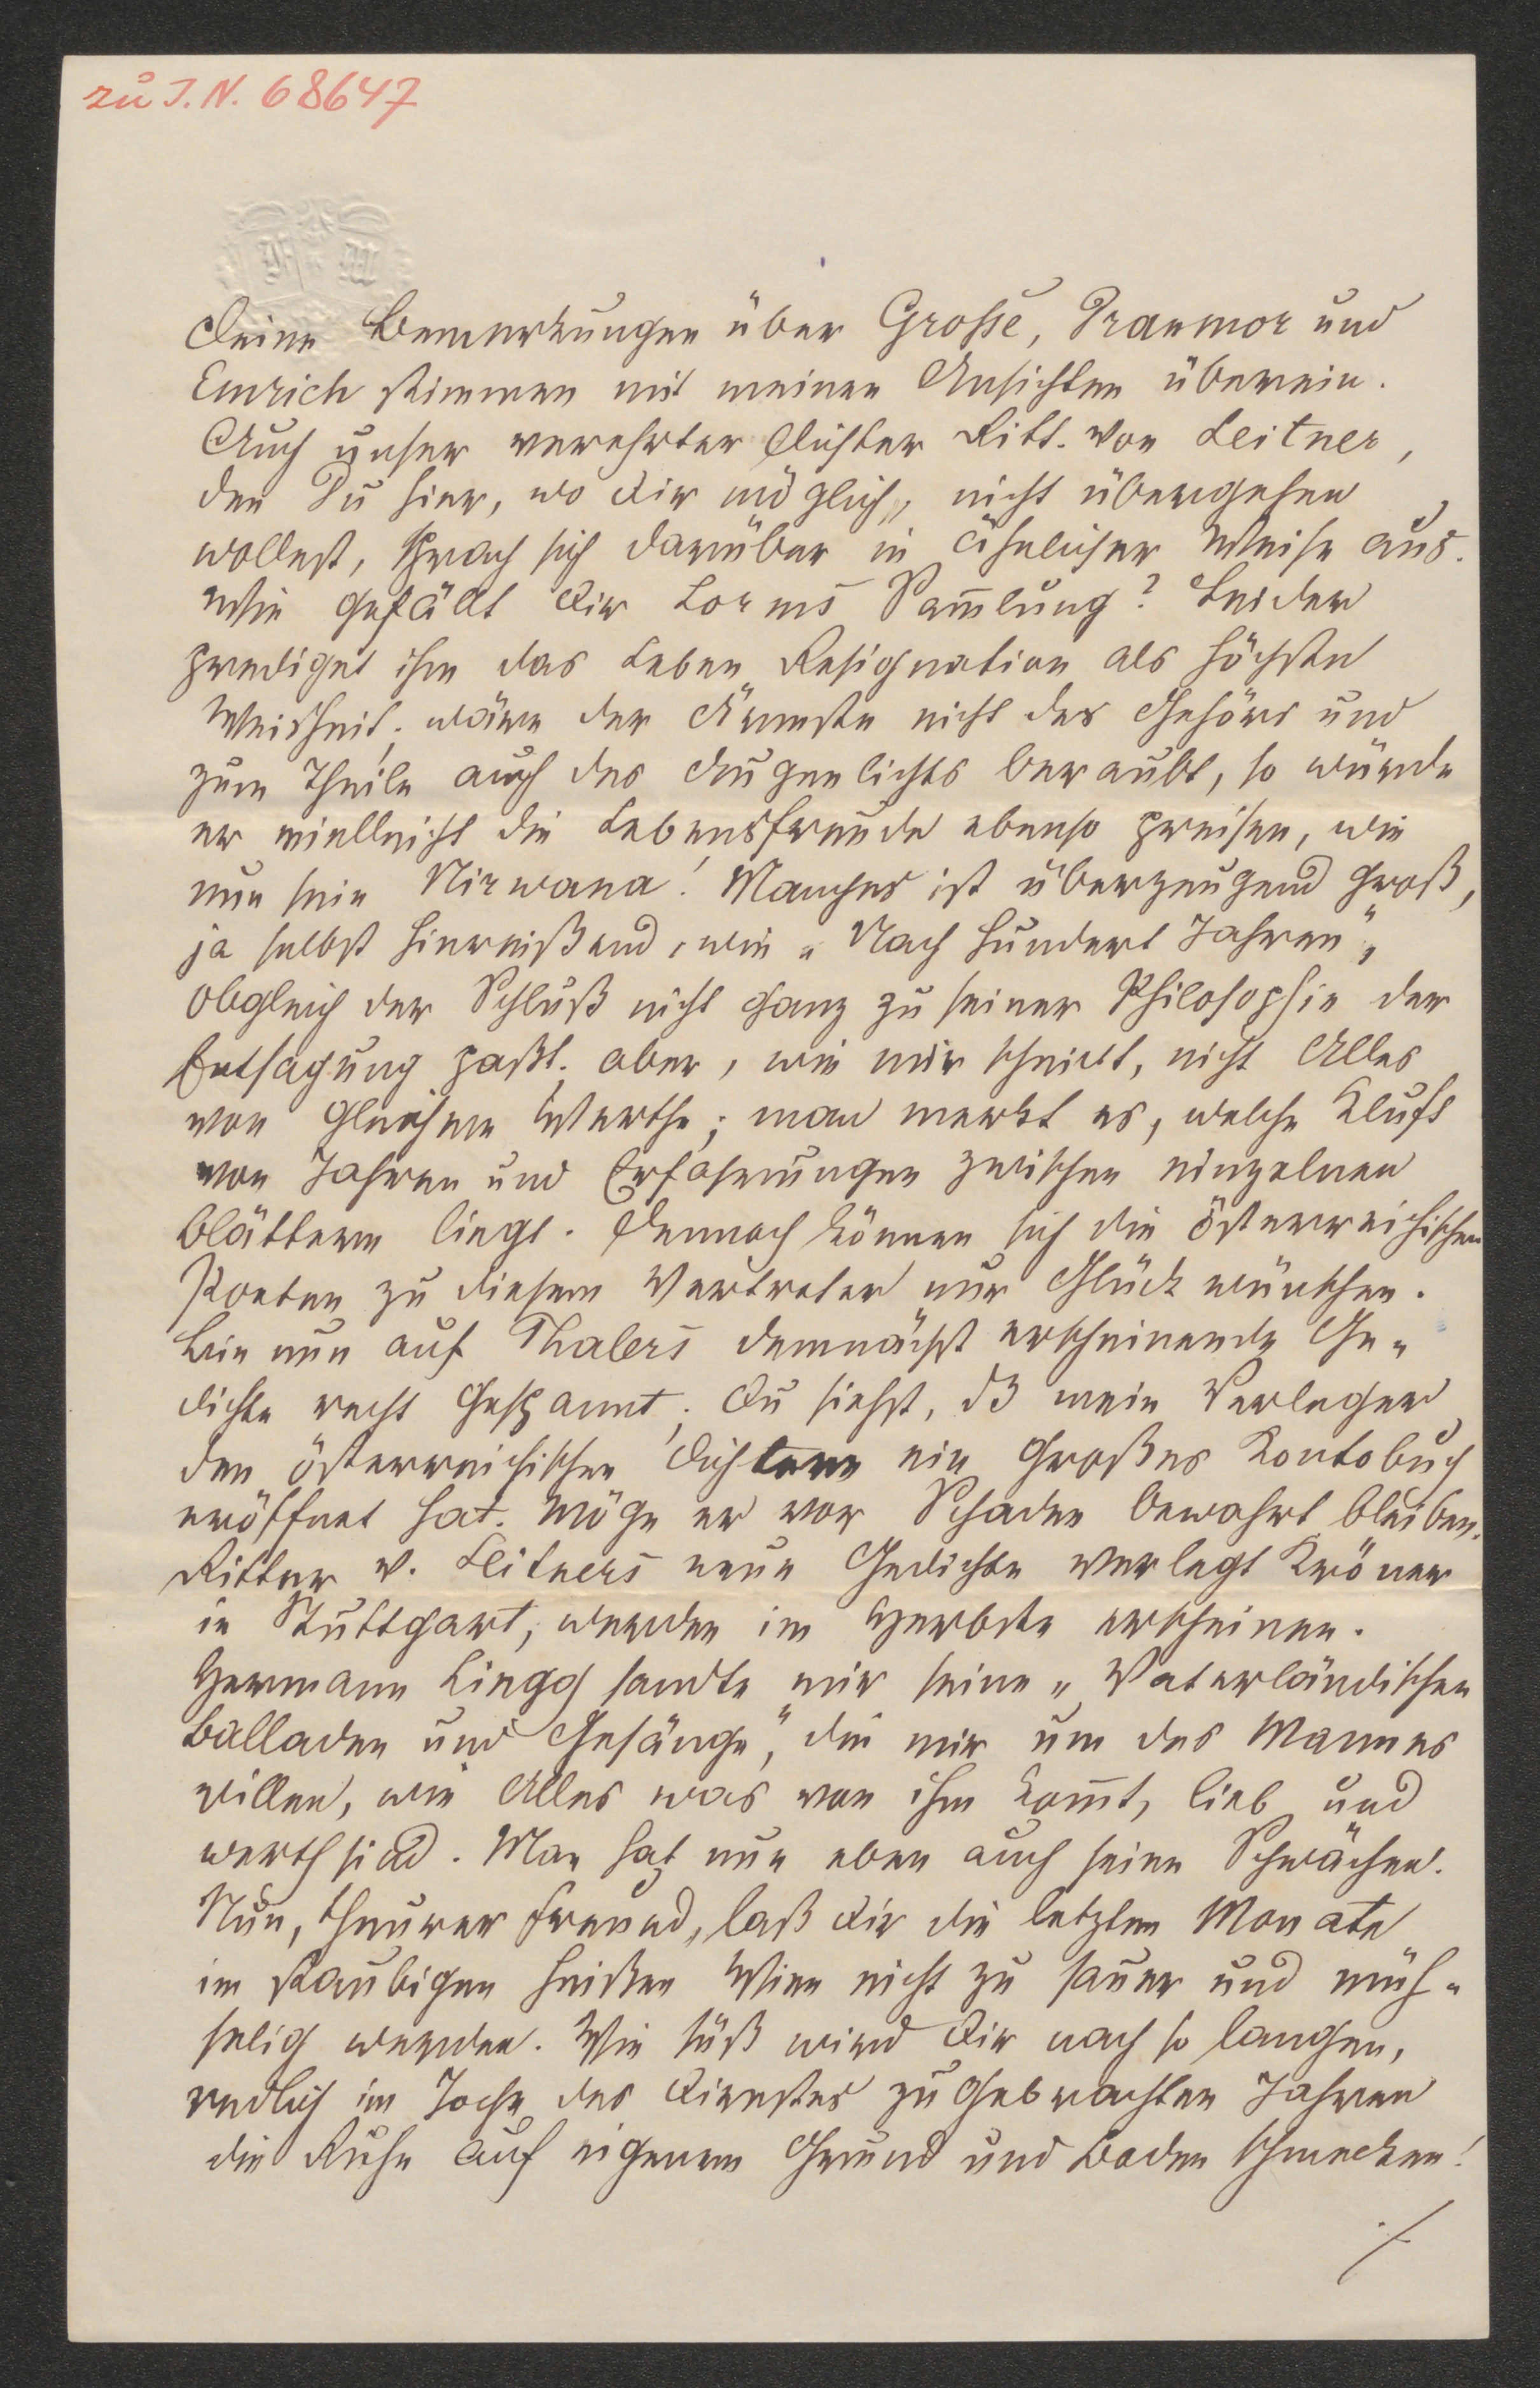 zu I.N. 68647
Deine Bemerkungen über Grosse, Dranmor und
Emrich stimmen mit meinen Ansichten überein.
Auch unser verehrter Dichter Ritt. von Leitner,
den Du hier, wo dir möglich, nicht übergehen
wollest, sprach sich darüber in ähnlicher Weise aus.
Wie gefällt dir Lorms Sam̅lung? Leider
prediget ihm das Leben Resignation als höchste
Weisheit; wäre der Ärmste nicht des Gehörs und
zum Theile auch des Augenlichts beraubt, so würde
er vielleicht die Lebensfreude ebenso preisen, wie
nun sein Nirwana! Manches ist überzeugend groß,
ja selbst hinreißend, wie „Nach hundert Jahren",
obgleich der Schluß nicht ganz zu seiner Philosophie der
Entsagung paßt; aber, wie mir scheint, nicht Alles
von gleichem Werthe; man merkt es, welche Kluft
von Jahren und Erfahrungen zwischen einzelnen
Blättern liegt. Dennoch können sich die österreichischen
Poeten zu diesem Vertreter nur Glück wünschen.
Bin nun auf Thalers demnächst erscheinende Ge-
dichte recht gespannt; Du siehst, dß mein Verleger
den österreichischen Dichtern ein großes Kontobuch
eröffnet hat. Möge er vor Schaden bewahrt bleiben.
Ritter v. Leitners neue Gedichte verlegt Kröner
in Stuttgart, werden im Herbste erscheinen.
Hermann Lingg sandte mir seine „Vaterländischen
Balladen und Gesänge", die mir um des Mannes
willen, wie Alles was von ihm kom̅t, lieb und
werth sind. Man hat nun eben auch seine Schwächen.
Nun, theurer Freund, laß dir die letzten Monate
im staubigen heißen Wien nicht zu sauer und müh-
selig werden. Wie süß wird dir nach so langen,
redlich im Joche des Dienstes zugebrachten Jahren
die Ruhe auf eigenem Grund und Boden schmecken!
./.